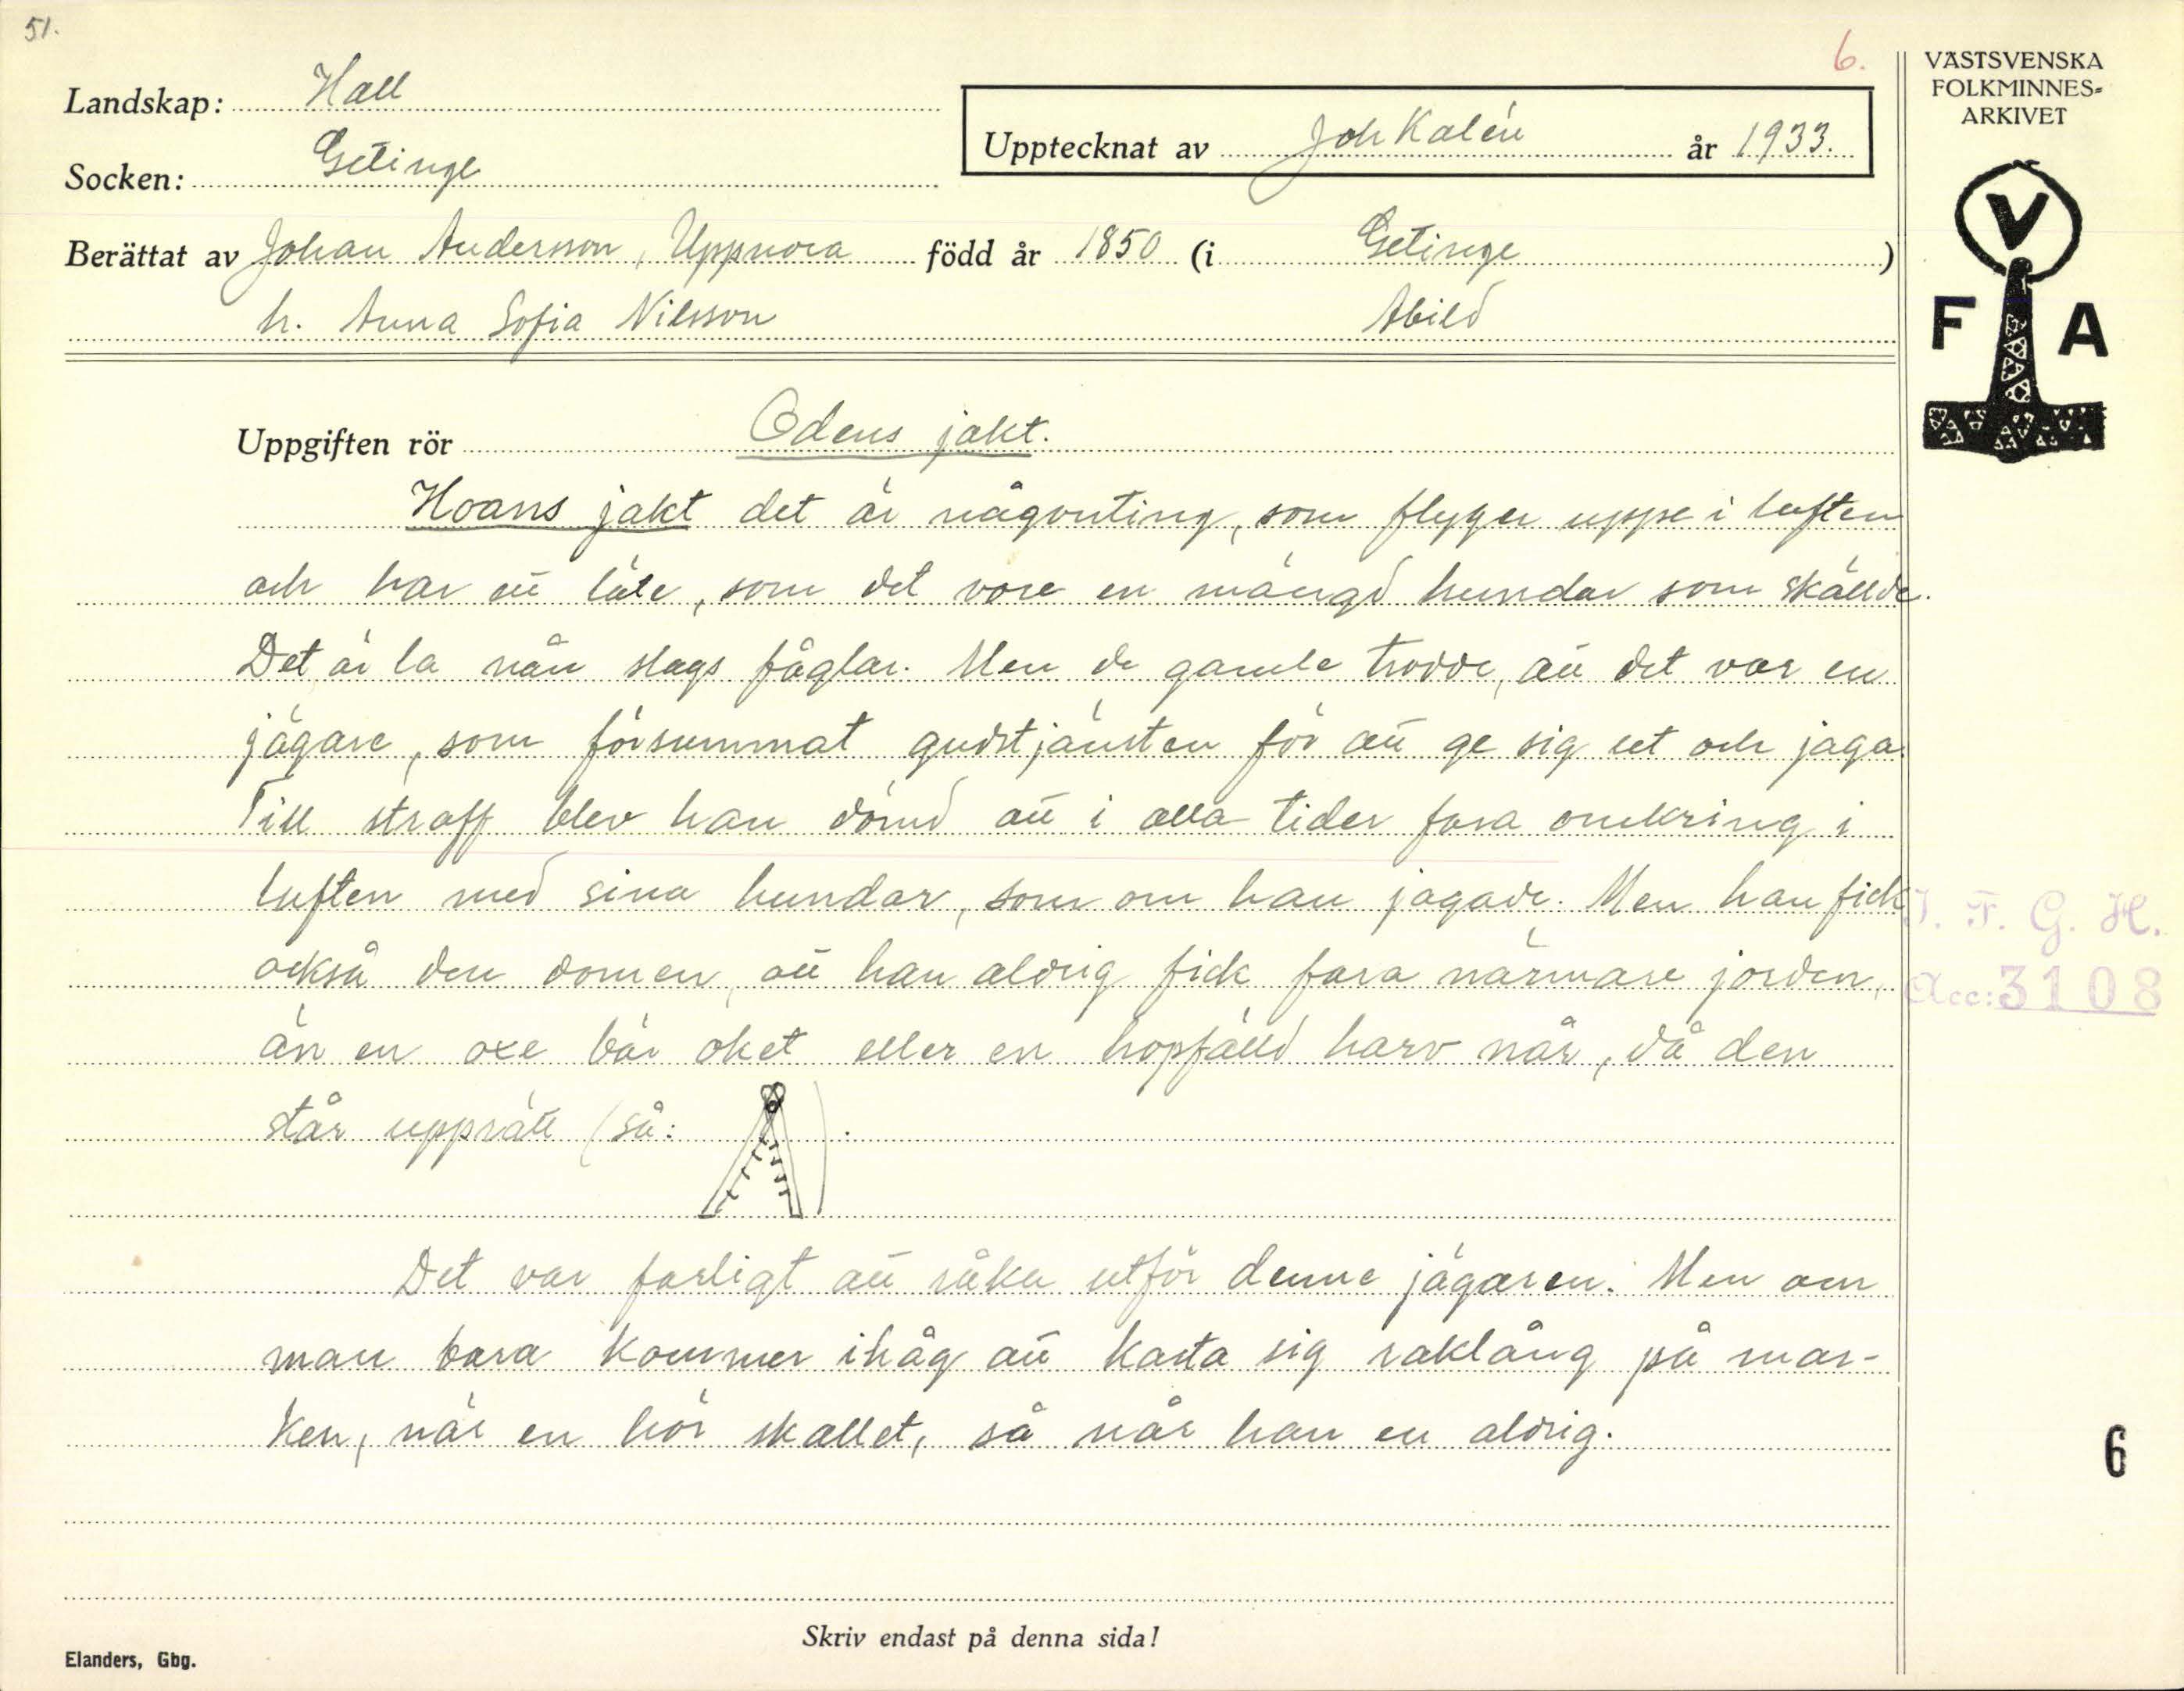 51.
6.
Landskap: Hall
Socken: Getinge
Upptecknat av Joh Kalén år 1933.
Berättat av Johan Andersson, Uppnora född år 1850 (i Getinge)
h. Anna Sofia Nilsson Abild
VÄSTSVENSKA
FOLKMINNES=
ARKIVET
V
F A
Uppgiften rör Odens jakt.
Hoans jakt det är någonting, som flyger uppe i luften
och har ett läte, som det vore en mängd hundar som skällde.
Det är la nån slags fåglar. Men de gamle trodde, att det var en
jägare, som försummat gudstjänsten för att ge sig ut och jaga.
Till straff blev han dömd att i alla tider fara omkring i
luften med sina hundar, som om han jagade. Men han fick
också den domen, att han aldrig fick fara närmare jorden,
än en oxe bär oket eller en hopfälld harv når, då den
står upprätt (så: ).
Det var farligt att råka utför denne jägaren. Men om
man bara kommer ihåg att kasta sig raklång på mar-
ken, när en hör skallet, så når han en aldrig.
I. F. G. H.
Acc: 3108
6
Skriv endast på denna sida!
Elanders, Gbg.